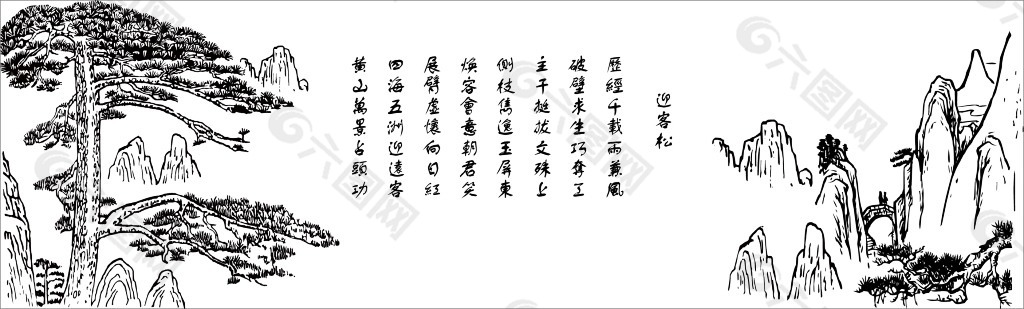 迎客松
歷經千載雨兼風
破壁求生巧奪工
主干挺拔文殊上
側枝雋逸玉屏東
煥容會意朝君笑
展臂虛懷向日紅
四海五洲迎遠客
黄山萬景占頭功
六图网